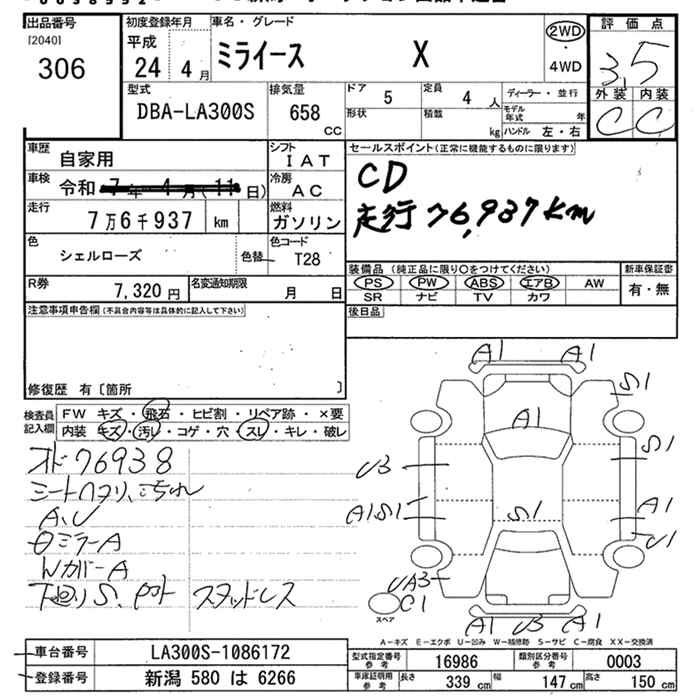 出品番号
[2040]
306
初度登録年月
平成
24 4 月
車名・グレード
ミライース X
2WD
・
4WD
評価点
3.5
外装 内装
C C
型式
DBA-LA300S
排気量
658
CC
ドア
5
定員
4 人
ディーラー・並行
形状
積載
kg
モデル年式 年
ハンドル 左・右
車歴
自家用
シフト
IAT
車検
令和 7 年 4 月(11 日)
冷房
AC
走行
7万6千937 km
燃料
ガソリン
色
シェルローズ
色替
色コード
T28
R券
7,320 円
名変通知期限
月 日
セールスポイント(正常に機能するものに限ります)
CD
走行 76,937km
装備品(純正品に限り○をつけてください)
新車保証書
PS PW ABS エアB AW
SR ナビ TV カワ
有・無
後日品
注意事項申告欄(不具合内容等は具体的に記入して下さい)
修復歴 有〔箇所 〕
検査員
記入欄
FW キズ・飛石・ヒビ割・リペア跡・×要
内装 キズ・汚レ・コゲ・穴・スレ・キレ・破レ
オド76938
シートヘタリ、こちれ
A、U
ミラーA
WカバーA
下廻りS、 スタッドレス
A1 A1
S1
A1
U3
S1
A1S1
S1
A1
U1
UA3
C1
スペア
A1 U3 A1
A-キズ E-エクボ U-凹み W-補修跡 S-サビ C-腐食 XX-交換済
車台番号
LA300S-1086172
登録番号
新潟 580 は 6266
型式指定番号
参考
16986
類別区分番号
参考
0003
車庫証明用
参考
長さ
339 cm
幅
147 cm
高さ
150 cm